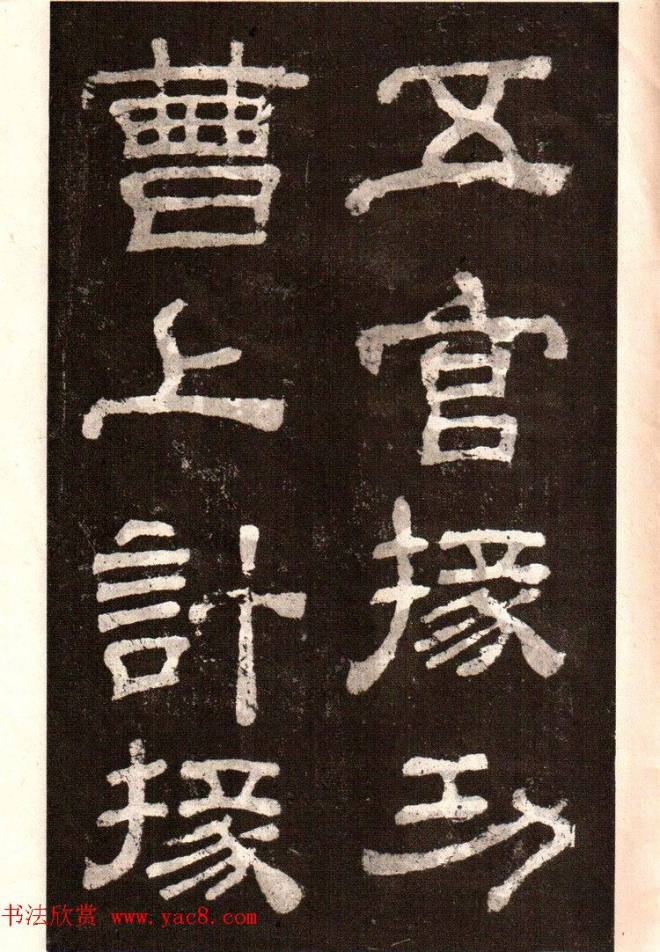 五官掾功
曹上計掾
书法欣赏 www.yac8.com